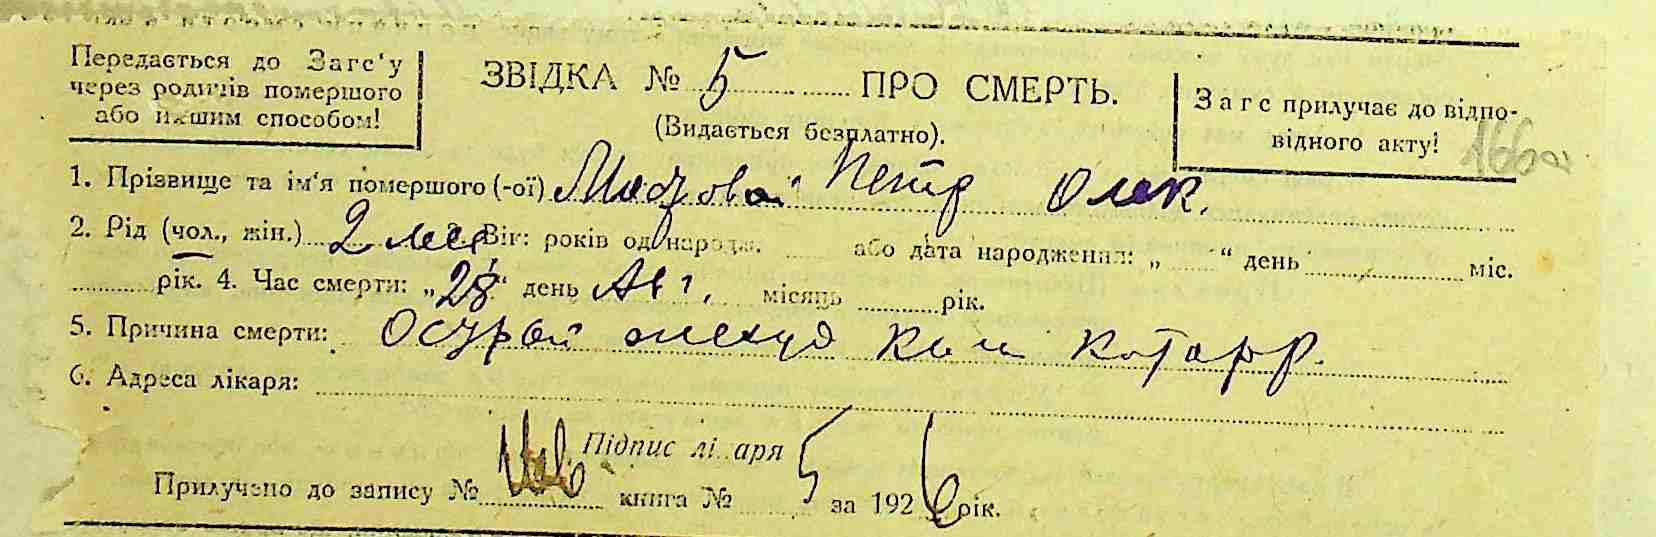 Передається до Загс'у
через родичів помершого
або иншим способом!
ЗВІДКА № 5 ПРО СМЕРТЬ.
(Видається безплатно).
Загс прилучає до відпо-
відного акту!
1. Прізвище та ім'я помершого (-ої) Петр Олек.
2. Рід (чол., жін.) 2 мес 3. Вік: років од народж. або дата народження: „ “ день міс.
рік. 4. Час смерти: „28“ день Авг. місяць рік.
5. Причина смерти: Острый желуд киш катарр.
6. Адреса лікаря:
Підпис лікаря
Прилучено до запису № книга № 5 за 1926 рік.